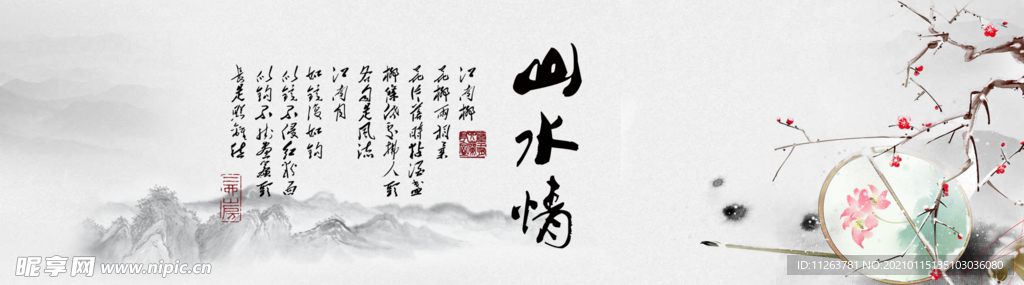 山水情
江南柳
花柳两相柔
花片落时黏酒盏
柳条低处拂人头
各自是风流
江南月
如镜复如钩
似镜不侵红粉面
似钩不挂画帘头
长是照离愁
昵享网 www.nipic.cn
ID:11263781 NO:20210115135103036080